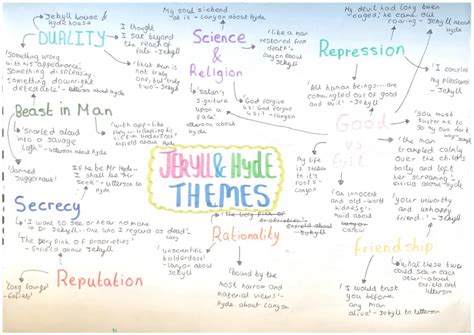 Jekyll house &
Hyde house
DUALITY
I thought
I sat beyond
the reach of
fate - Jekyll
'that man is
not truly
one, but truly
two' - Jekyll
'something wrong
with his appearance;
something displeasing,
something downright
detestable' - Utterson about Hyde
my soul sickened
at it - Lanyon about Hyde
Science
&
Religion
'like a man
restored from
death'
Jekyll
'Satan's
signature
upon a
face'
'God forgive
us, God forgive
us'
My devil had long been
caged; he came out
roaring - Jekyll about Hyde
Repression
'I concealed
my pleasures'
- Jekyll
'All human beings... are
commingled out of good
and evil' - Jekyll
Beast in Man
'snarled aloud
into a savage
laugh' - Utterson about Hyde
'with ape-like
fury... trampling his
victim underfoot'
- Enfield about Hyde
'damned
Juggernaut'
If he be Mr Hyde...
I shall be 'Mr
Seek' - Utterson
to Hyde
JEKYLL & HYDE
THEMES
Good
vs
Evil
'you must
suffer me to
go my own dark
way'
'the man
trampled calmly
over the child's
body and left
her screaming'
Enfield about
Hyde
My life
is shaken
to its
roots' -
Lanyon
'an innocent
and old-world
kindness'
'your unworthy
and unhappy
friend' - Jekyll
Secrecy
'I want to see or hear no more
of Dr Jekyll... one who I regard as dead'
The very pink of proprieties'
- Enfield about Jekyll
Rationality
'unscientific
balderdash'
Lanyon about
Jekyll
'bound by the
most narrow
and material
views' - Hyde
about Lanyon
Friendship
'what these two
could see in each
other' - about Enfield
and Utterson
'I would trust
you before
any man
alive' - Jekyll to Utterson
Reputation